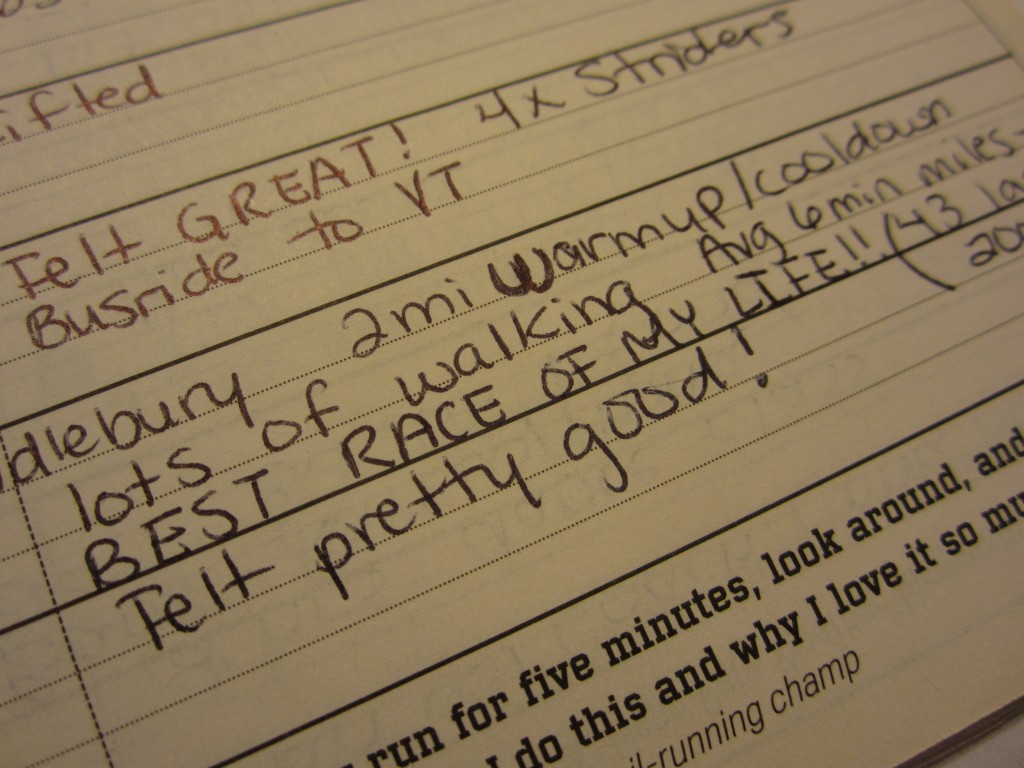 ifted
Felt GREAT! 4x Striders
Busride to VT
dlebury 2mi warmup/cooldown
lots of walking Avg 6min miles-
BEST RACE OF MY LIFE!! (43 la
Felt pretty good! 20
run for five minutes, look around, and
I do this and why I love it so mu
il-running champ